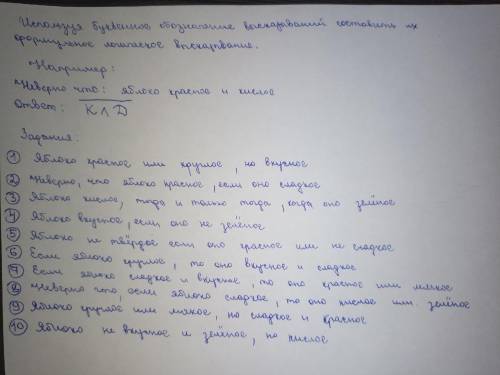 Используя буквенное обозначение высказываний составить их
формульное логическое высказывание.
Например:
Неверно что: яблоко красное и кислое
Ответ: K ∧ D
Задания:
1 Яблоко красное или круглое, но вкусное
2 Неверно, что яблоко красное, если оно сладкое
3 Яблоко кислое, тогда и только тогда, когда оно зелёное
4 Яблоко вкусное, если оно не зелёное
5 Яблоко не твёрдое если оно красное или не сладкое
6 Если яблоко круглое, то оно вкусное и сладкое
7 Если яблоко сладкое и вкусное, то оно красное или мягкое
8 Неверно что, если яблоко сладкое, то оно кислое или зелёное
9 Яблоко круглое или мягкое, но сладкое и красное
10 Яблоко не вкусное и зелёное, но кислое